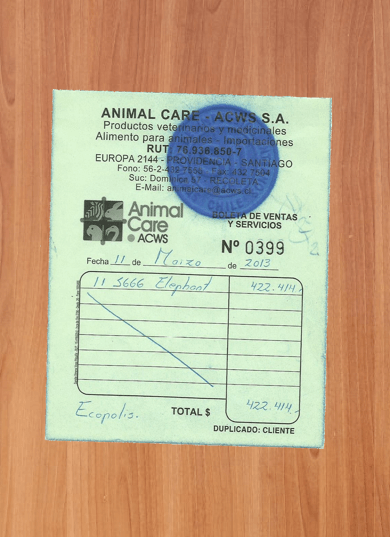 ANIMAL CARE - ACWS S.A.
Productos veterinarios y medicinales
Alimento para animales - Importaciones
RUT: 76.936.850-7
EUROPA 2144 - PROVIDENCIA - SANTIAGO
Fono: 56-2-439 - Fax: 432 7504
Suc: Dominica 67 - RECOLETA
E-Mail:
CHILE
Animal
Care
ACWS
BOLETA DE VENTAS
Y SERVICIOS
Nº 0399
Fecha 11 de Marzo de 2013
11 5666 Elephant 422.414.-
Ecopolis. TOTAL $ 422.414.-
DUPLICADO: CLIENTE